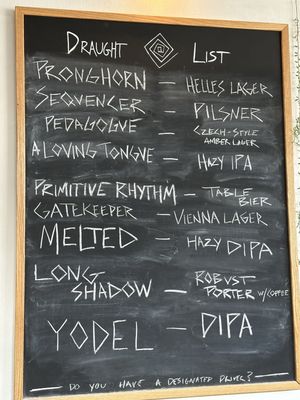 DRAUGHT LIST
PRONGHORN — HELLES LAGER
SEQUENCER — PILSNER
PEDAGOGUE — CZECH-STYLE
AMBER LAGER
A LOVING TONGUE — HAZY IPA
PRIMITIVE RHYTHM — TABLE
BIER
GATEKEEPER — VIENNA LAGER
MELTED — HAZY DIPA
LONG
SHADOW — ROBUST
PORTER W/COFFEE
YODEL — DIPA
— DO YOU HAVE A DESIGNATED DRIVER? —